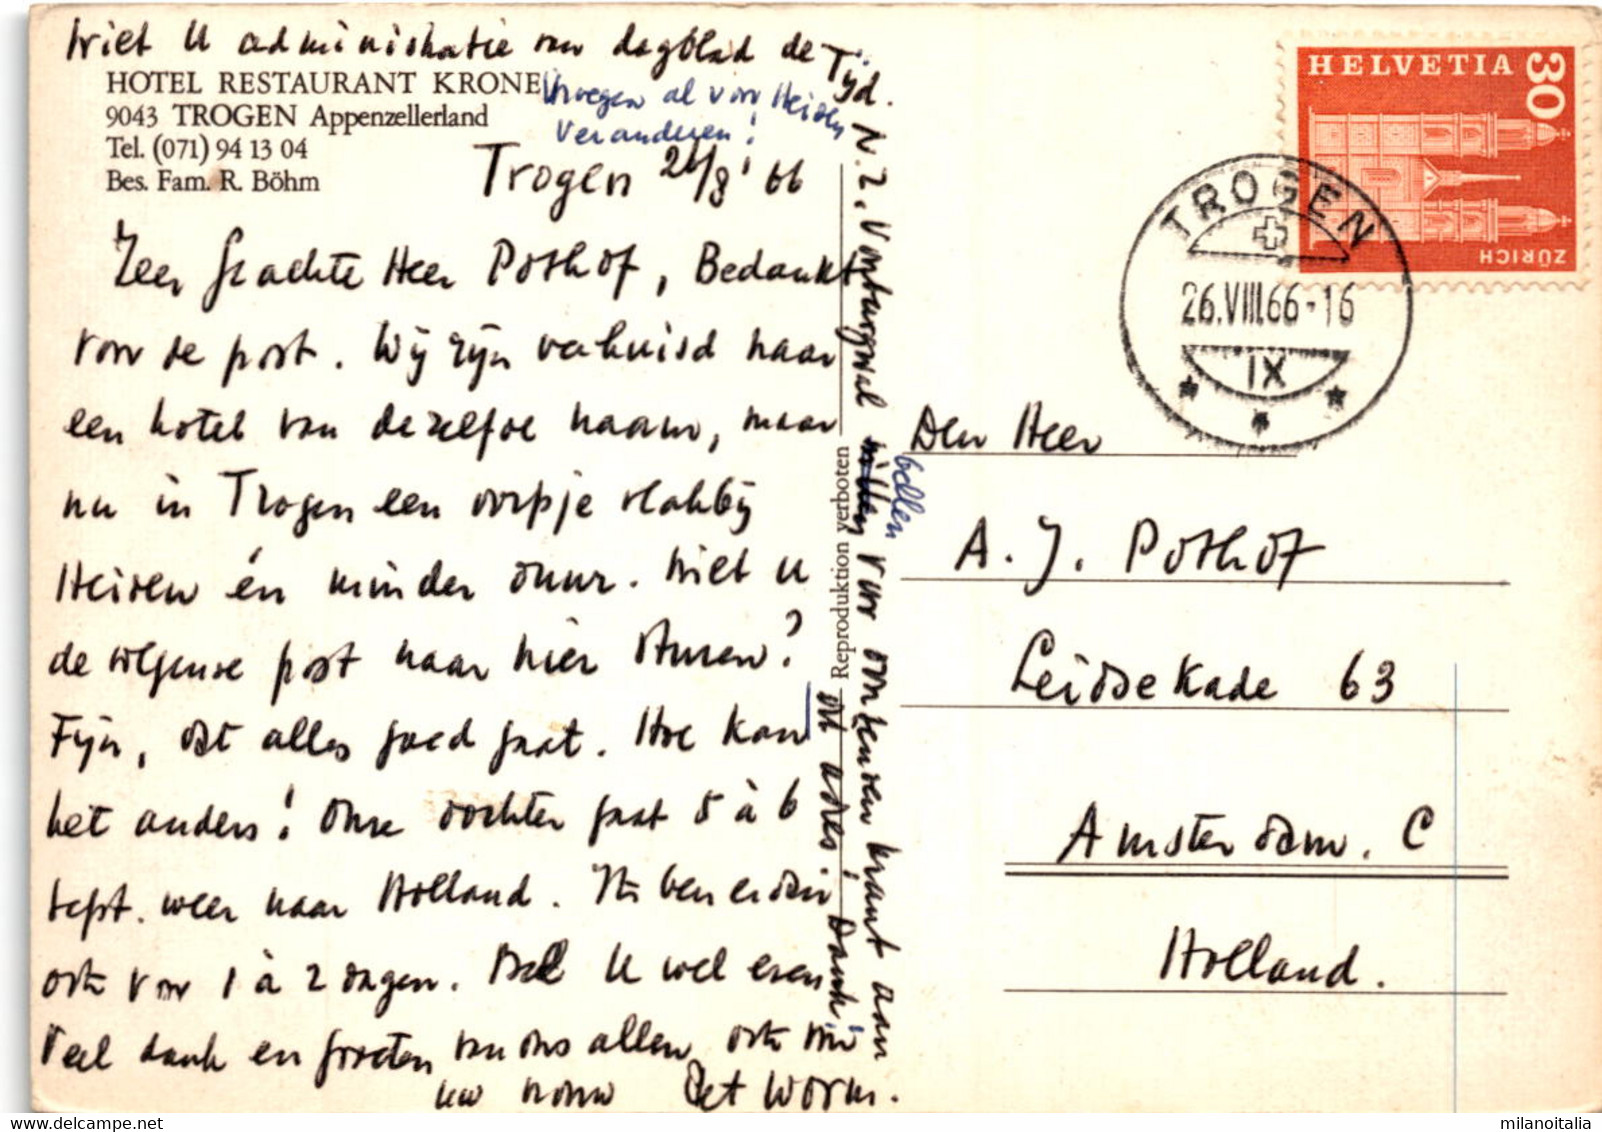 Wilt U administratie van dagblad de Tijd.
HOTEL RESTAURANT KRONE
9043 TROGEN Appenzellerland
Tel. (071) 94 13 04
Bes. Fam. R. Böhm
Vroegen al voor Heiden
veranderen!
Trogen 26/8 '66
Zeer Geachte Heer Posthof, Bedankt
voor de post. Wij zijn verhuisd naar
een hotel van dezelfde naam, maar
nu in Trogen een dorpje vlakbij
Heiden én minder duur. Wilt u
de volgende post naar hier sturen?
Fijn, dat alles goed gaat. Hoe kan
het anders! Onze dochter gaat 5 à 6
sept. weer naar Holland. Ik ben er dan
ook voor 1 à 2 dagen. Bel U wel even
Veel dank en groeten van ons allen, ook van
uw vrouw Bet Worm.
N.Z. Voorburgwal willen bellen voor doorzenden krant aan
dit adres! Dank!
Reproduktion verboten
HELVETIA 30
ZÜRICH
TROGEN
26.VIII.66-16
IX
Den Heer
A. J. Posthof
Leidsekade 63
Amsterdam. C
Holland.
milanoitalia